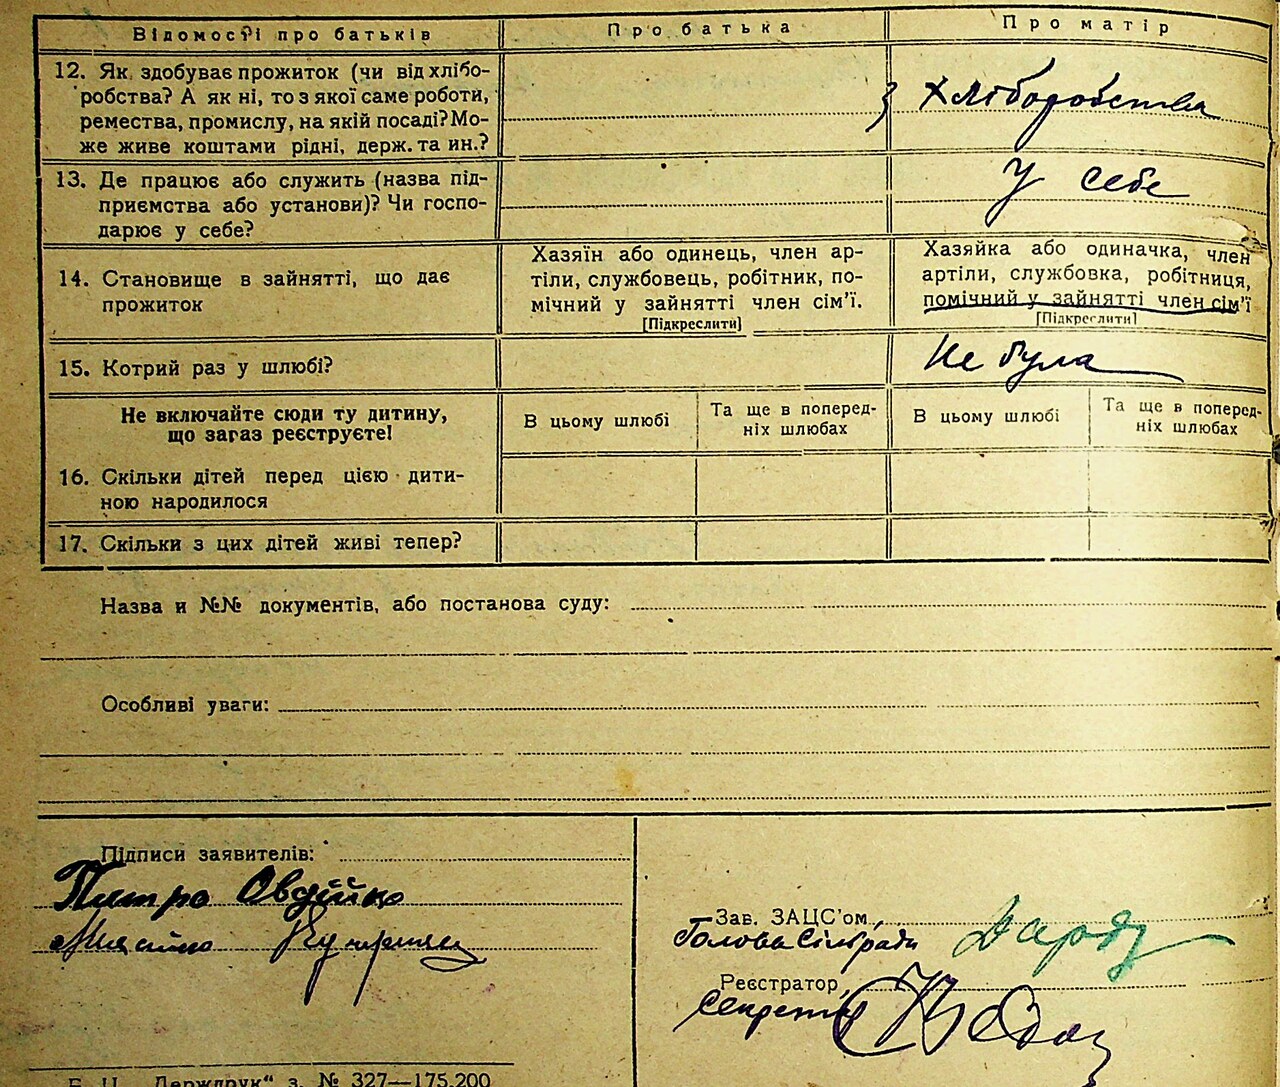 Відомості про батьків
Про батька
Про матір
12. Як здобуває прожиток (чи від хлібо-
робства? А як ні, то з якої саме роботи,
ремества, промислу, на якій посаді? Мо-
же живе коштами рідні, держ. та ин.?
Хліборобства
13. Де працює або служить (назва під-
приємства або установи)? Чи госпо-
дарює у себе?
У себе
14. Становище в зайнятті, що дає
прожиток
Хазяїн або одинець, член ар-
тіли, службовець, робітник, по-
мічний у зайнятті член сім’ї.
[Підкреслити]
Хазяйка або одиначка, член
артіли, службовка, робітниця,
помічний у зайнятті член сім’ї
[Підкреслити]
15. Котрий раз у шлюбі?
Не була
Не включайте сюди ту дитину,
що загаз реєструєте!
В цьому шлюбі
Та ще в поперед-
ніх шлюбах
В цьому шлюбі
Та ще в поперед-
ніх шлюбах
16. Скільки дітей перед цією дити-
ною народилося
17. Скільки з цих дітей живі тепер?
Назва и №№ документів, або постанова суду:
Особливі уваги:
Підписи заявителів:
Петро Овдійко
Зав. ЗАЦС’ом,
Голова Сільради
Реєстратор,
Секретар
Б. Ц. „Держдрук“ з. № 327—175.200